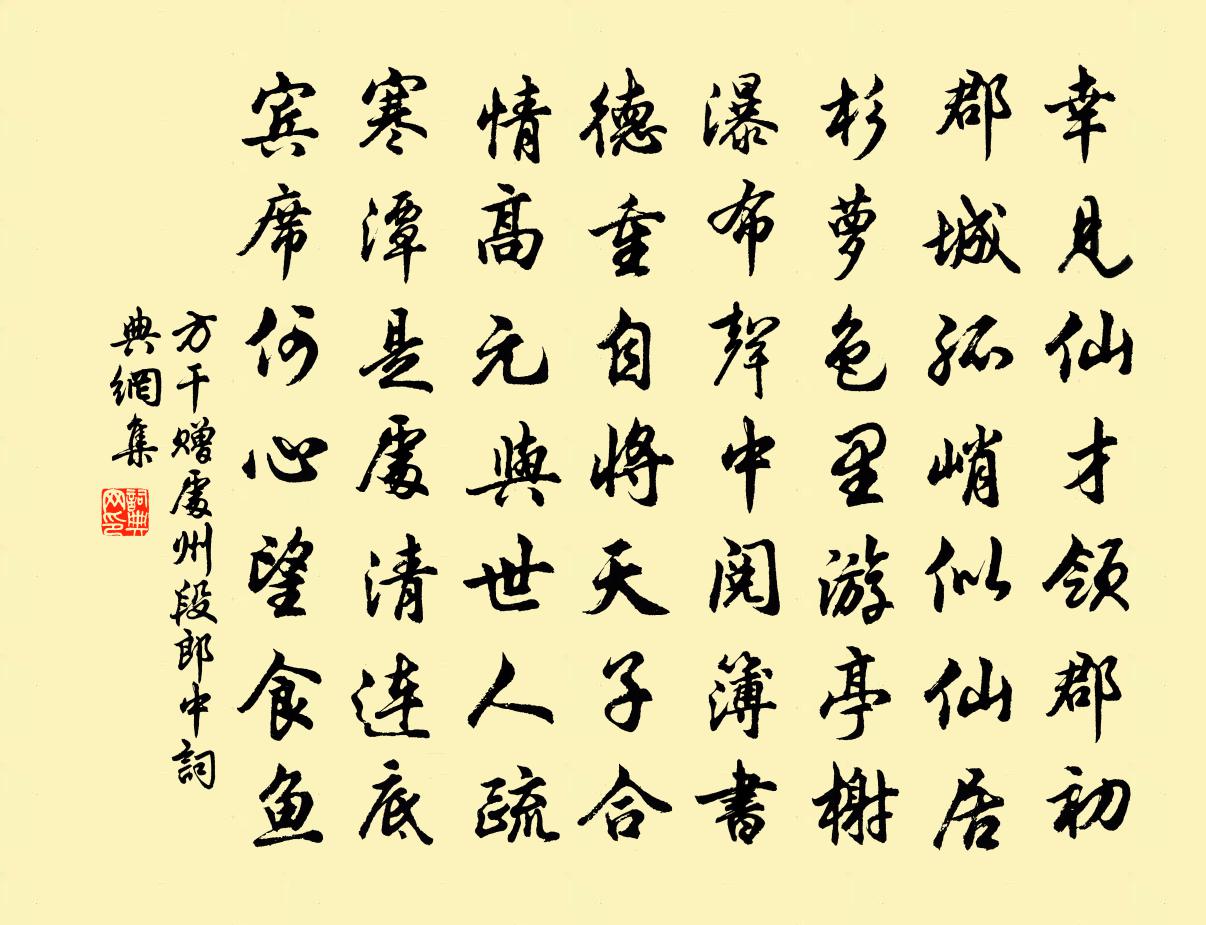 幸見仙才領郡初
郡城孤峭似仙居
杉萝色里游亭榭
瀑布聲中閱簿書
德重自將天子合
情高元與世人疏
寒潭是處清連底
宾席何心望食鱼
方干赠處州段郎中詞
典網集
詞典
网印